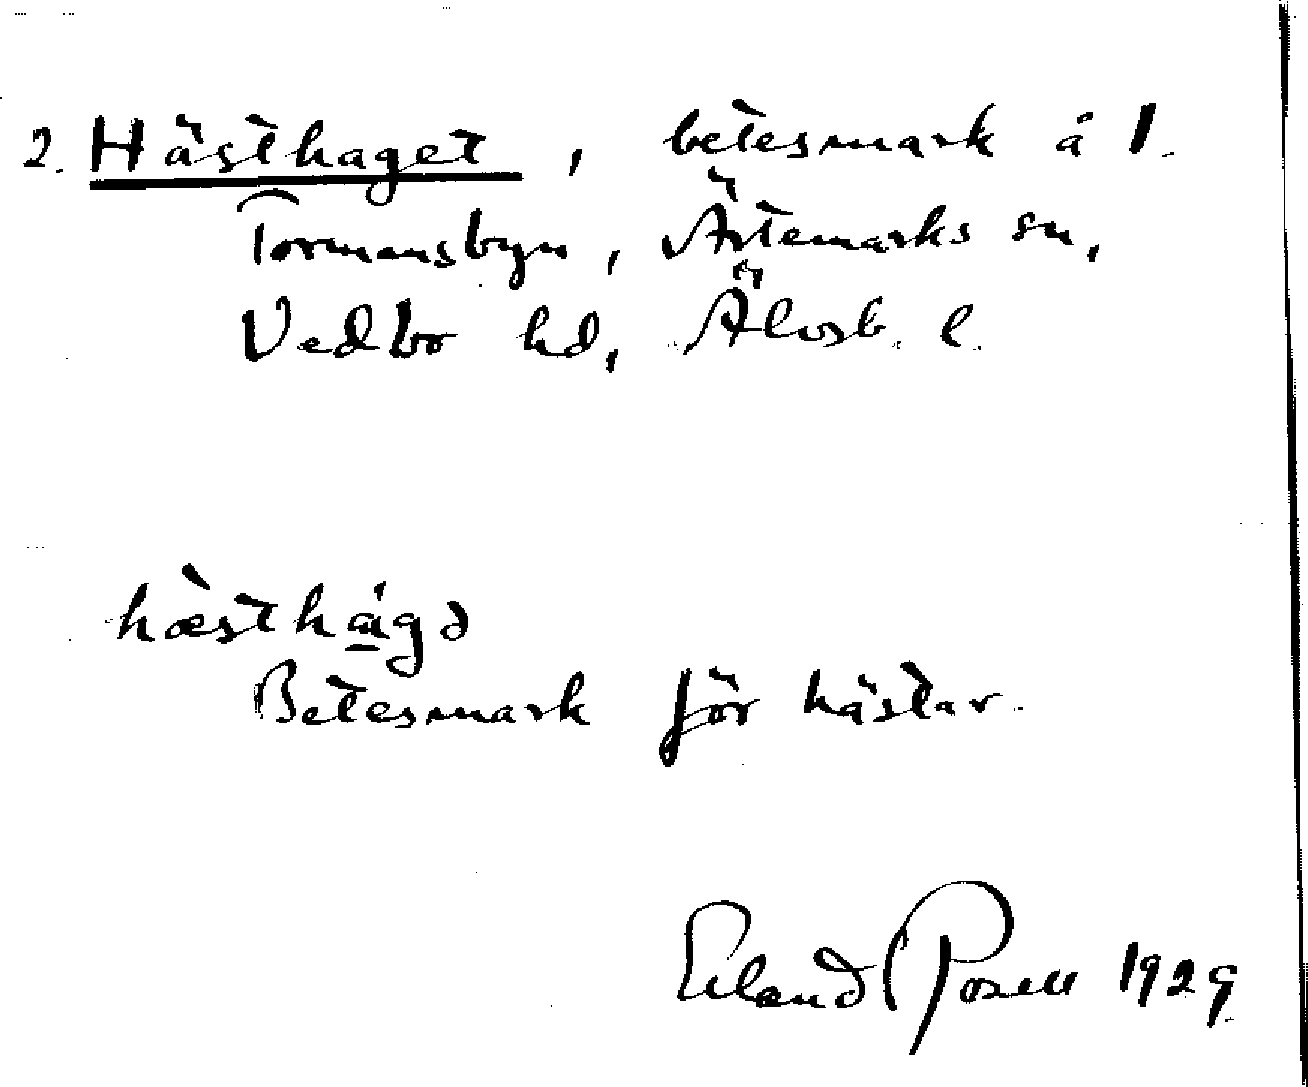 2. Hästhaget, betesmark å 1.
Tormansbyn, Ärtemarks sn,
Vedbo hd, Älvsb. l.
hæ̀sthágə
Betesmark för hästar.
Erland Rosell 1929